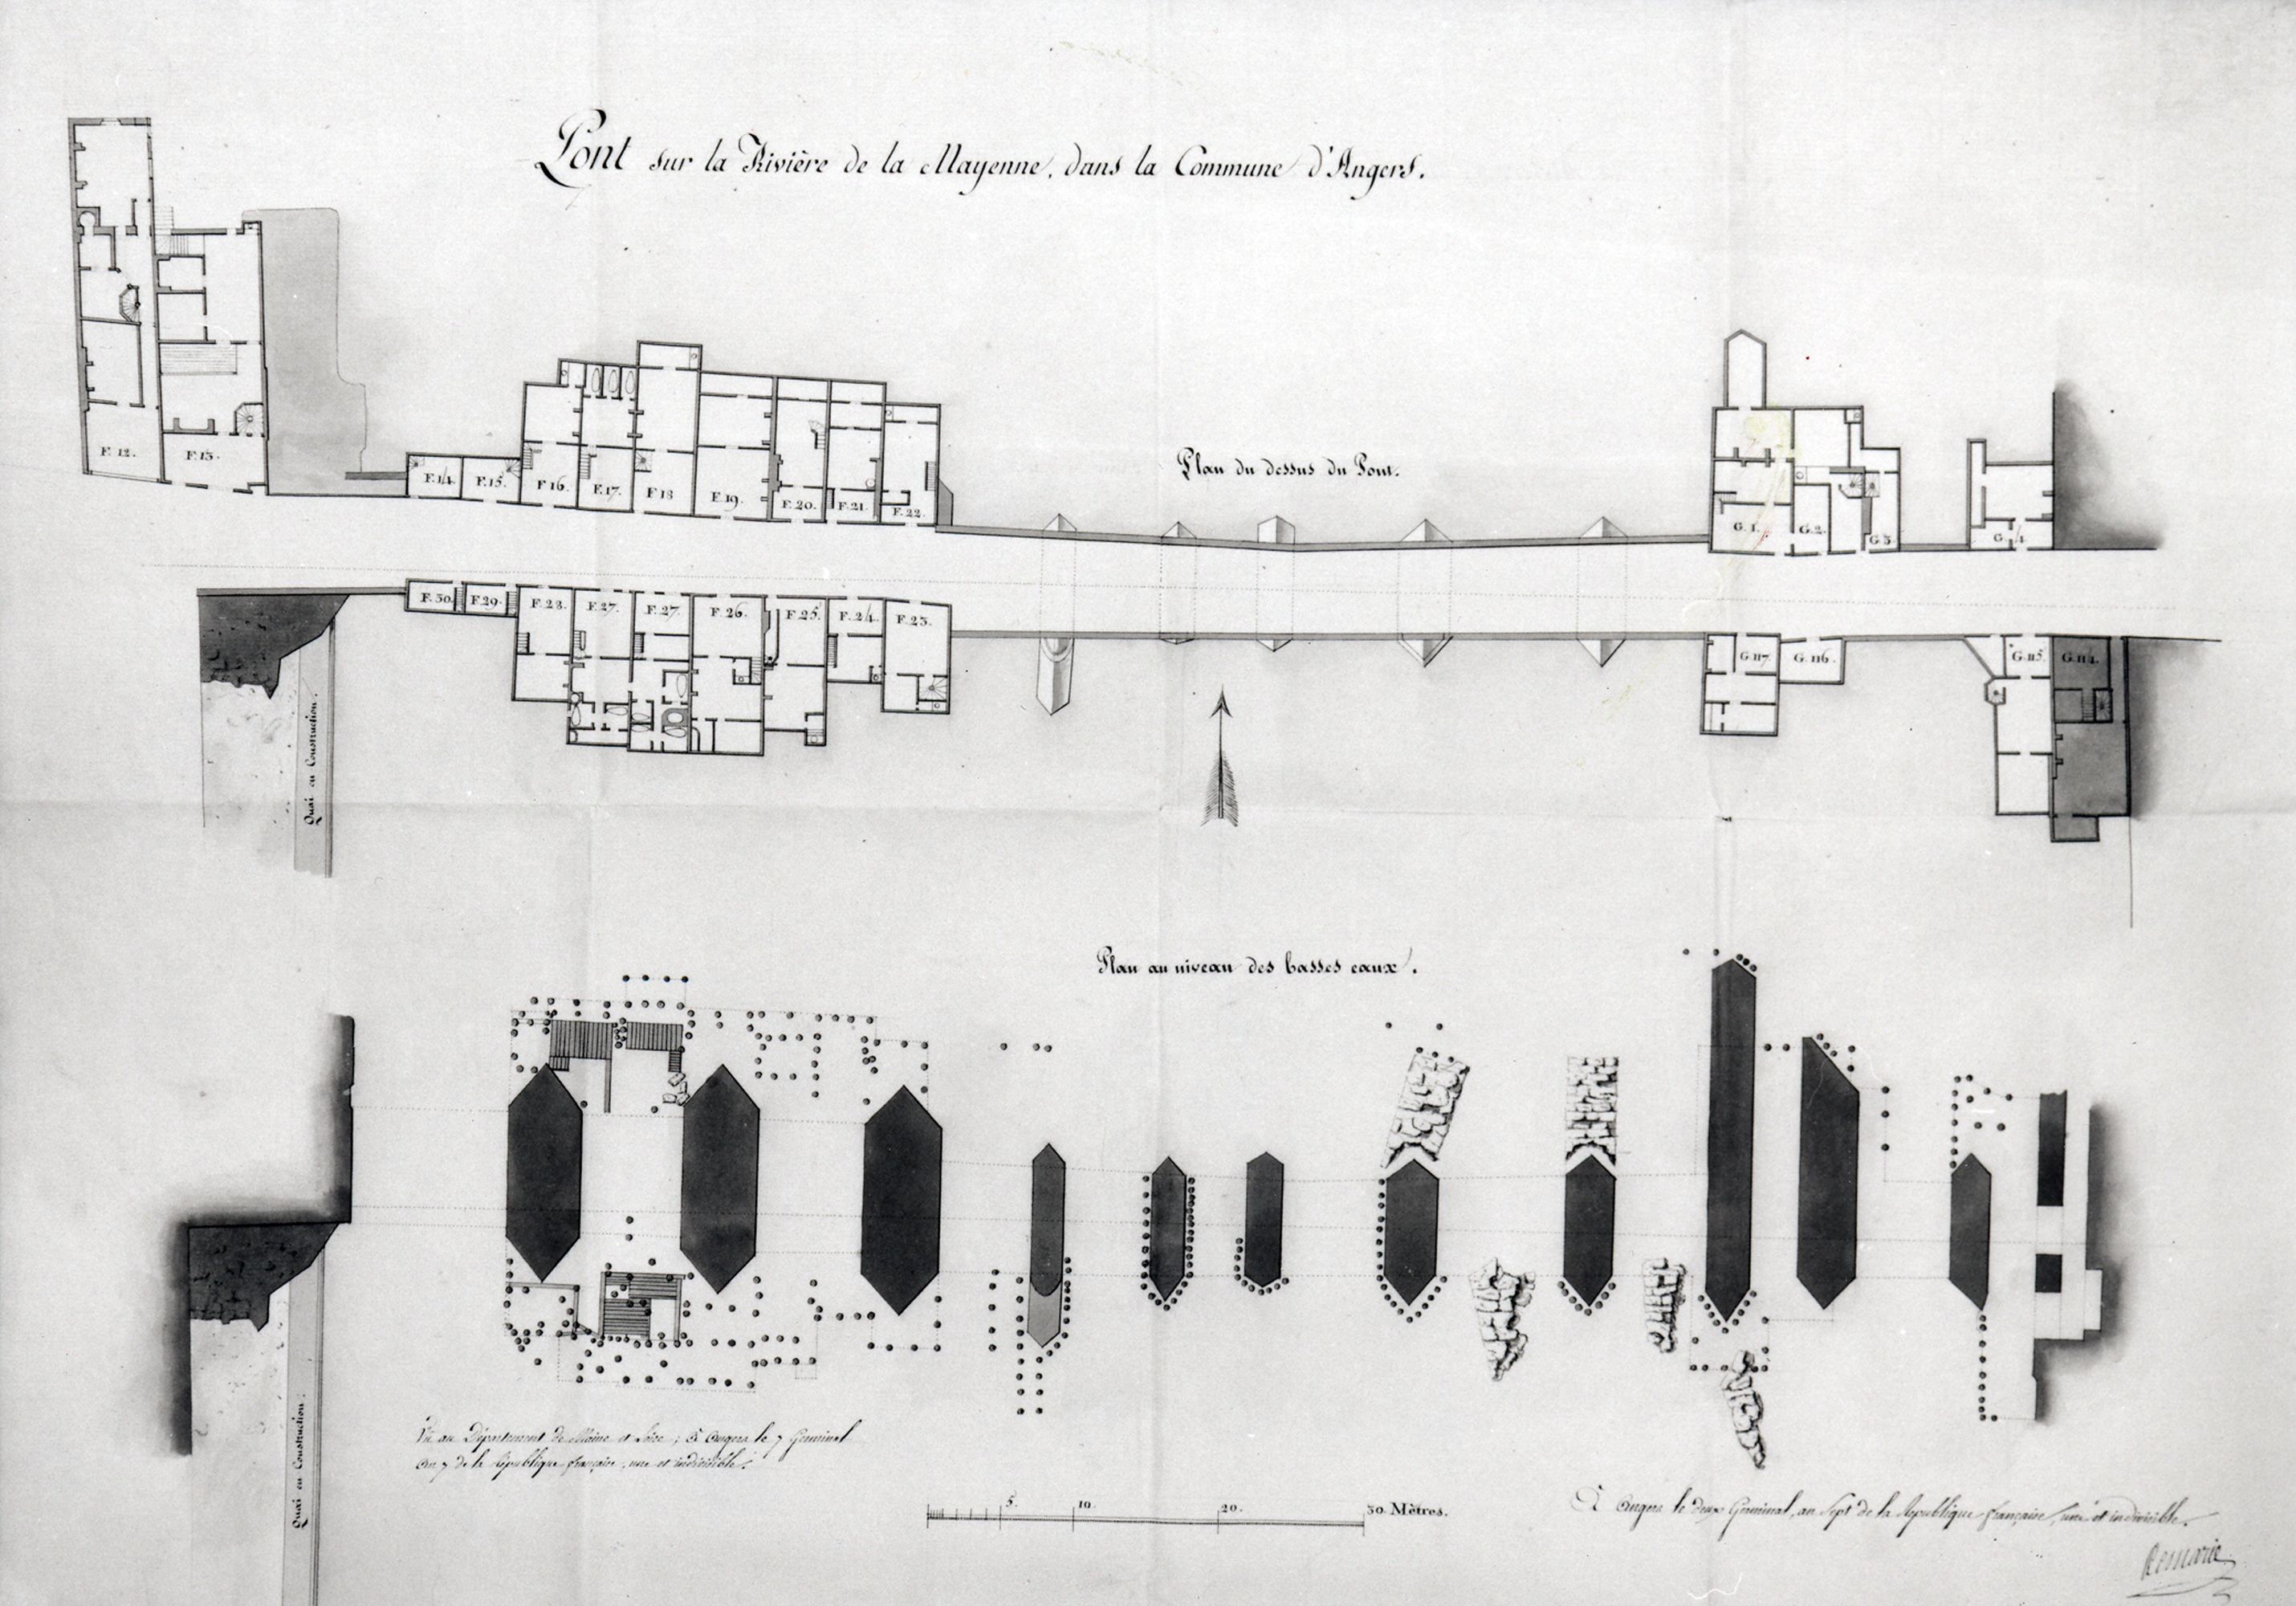 Pont sur la Rivière de la Mayenne, dans la Commune d'Angers.
Plan du dessus du Pont.
F. 12.
F. 13.
F. 14.
F. 15.
F 16.
F. 17.
F 18
F. 19.
F. 20.
F. 21.
F. 22.
G. 1.
G. 2.
G. 3.
G. 4.
F. 30.
F. 29.
F. 28.
F. 27.
F. 27.
F. 26.
F. 25.
F. 24.
F. 23.
G. 117.
G. 116.
G. 115.
G. 114.
Quai en Construction.
Plan au niveau des basses eaux.
Quai en Construction.
Vu au Département de Maine et Loire; à Angers le 7 Germinal
an 7 de la République française, une et indivisible.
5.
10.
20.
30 Mètres.
À Angers le deux Germinal, an Sept de la République française, une et indivisible.